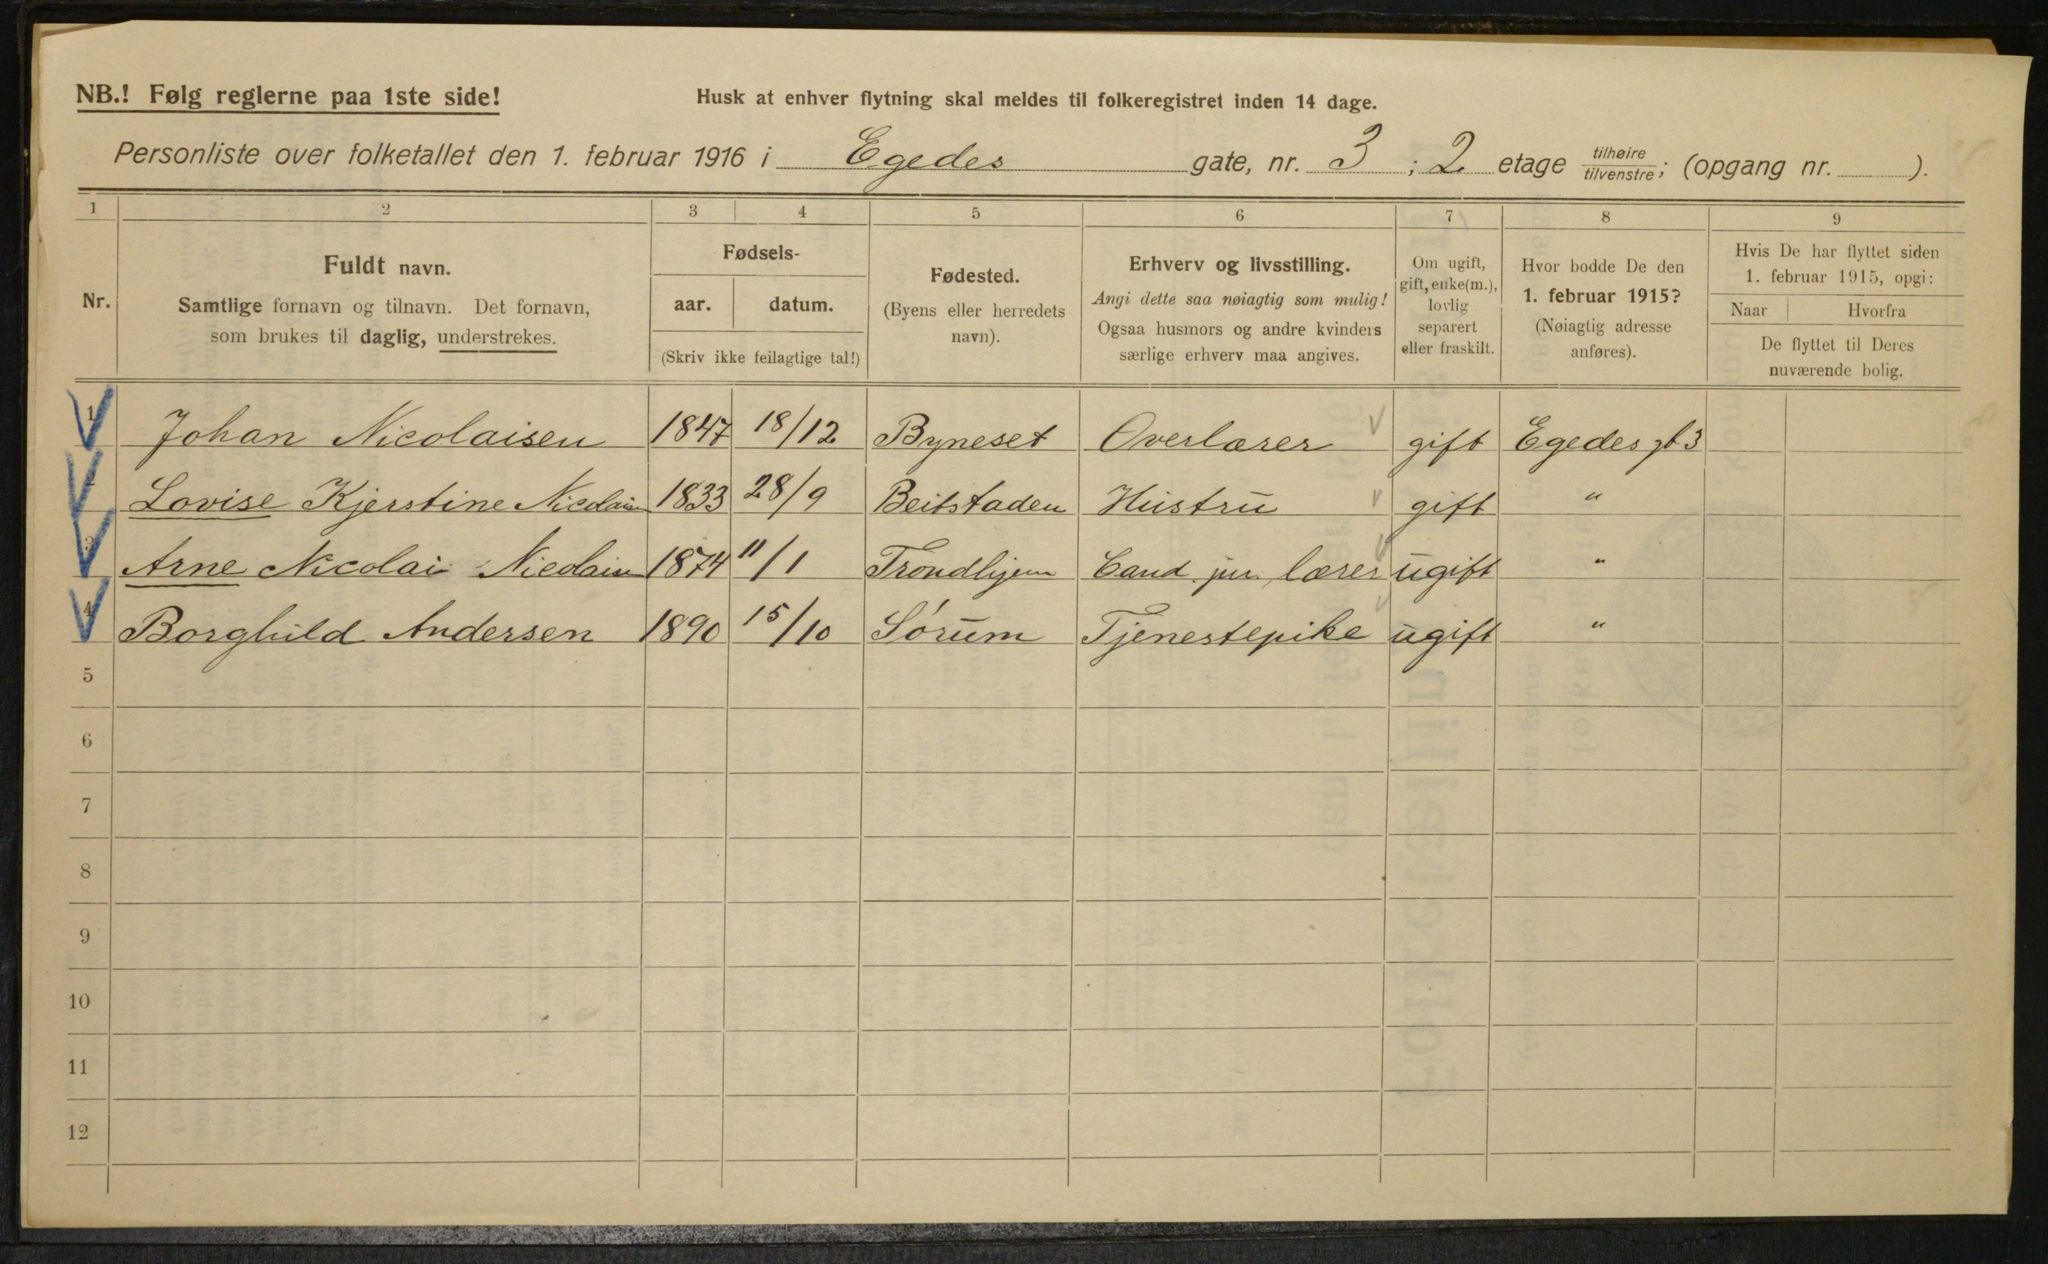 NB.! Følg reglerne paa 1ste side!
Husk at enhver flytning skal meldes til folkeregistret inden 14 dage.
Personliste over folketallet den 1. februar 1916 i Egedes gate, nr. 3 ; 2 etage tilhøire tilvenstre; (opgang nr. ).
1 2 3 4 5 6 7 8 9
Nr.
Fuldt navn.
Samtlige fornavn og tilnavn. Det fornavn,
som brukes til daglig, understrekes.
Fødsels-
aar. datum.
(Skriv ikke feilagtige tal!)
Fødested.
(Byens eller herredets
navn).
Erhverv og livsstilling.
Angi dette saa nøiagtig som mulig!
Ogsaa husmors og andre kvinders
særlige erhverv maa angives.
Om ugift,
gift, enke(m.),
lovlig
separert
eller fraskilt.
Hvor bodde De den
1. februar 1915?
(Nøiagtig adresse
anføres).
Hvis De har flyttet siden
1. februar 1915, opgi:
Naar Hvorfra
De flyttet til Deres
nuværende bolig.
1 Johan Nicolaisen 1847 18/12 Byneset Overlærer gift Egedes gt 3
2 Lovise Kjerstine Nicolaisen 1833 28/9 Beitstaden Hustru gift "
3 Arne Nicolai Nicolaisen 1874 11/1 Trondhjem Cand. jur. lærer ugift "
4 Borghild Andersen 1890 15/10 Sørum Tjenestepike ugift "
5
6
7
8
9
10
11
12